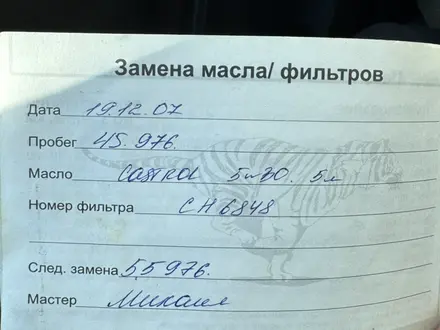 Замена масла/ фильтров
Дата 19.12.07
Пробег 45.976.
Масло Castrol 5w30. 5л
Номер фильтра CH6848
След. замена 55976.
Мастер Микаил